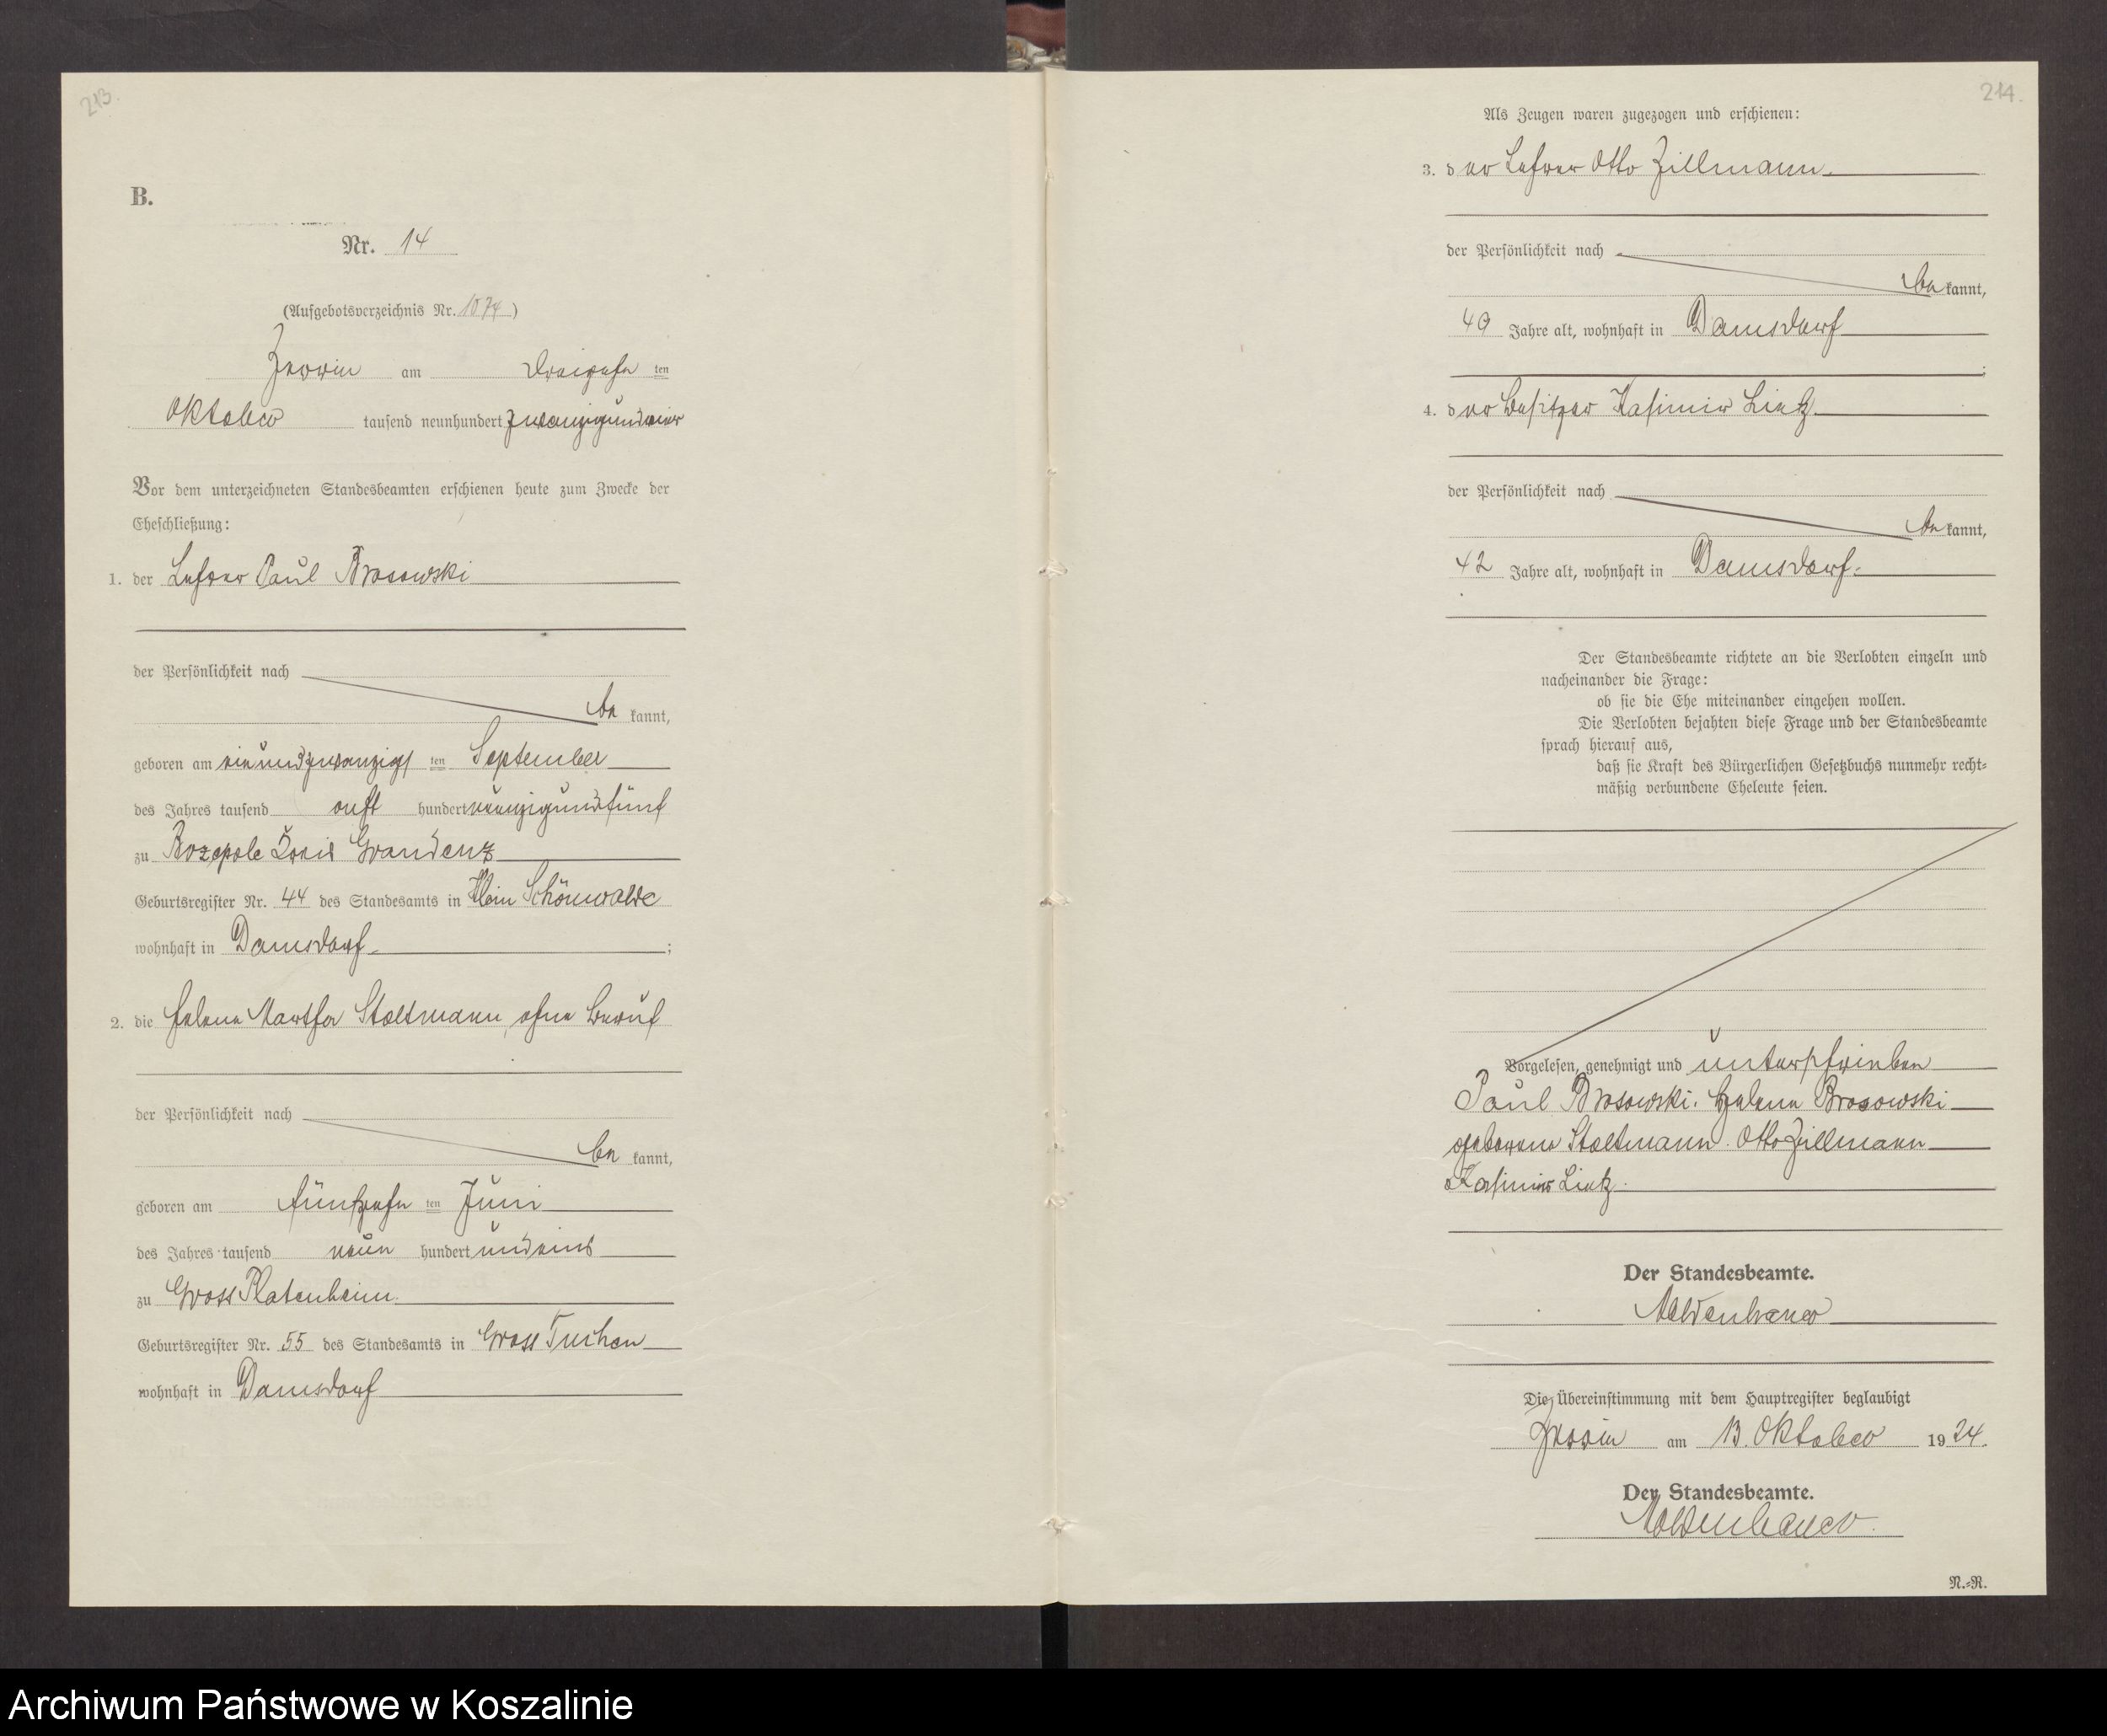 213.
B.
Nr. 14
(Aufgebotsverzeichnis Nr. 1074)
am dreizehn ten
Oktober tausend neunhundert zwanzigundvier
Vor dem unterzeichneten Standesbeamten erschienen heute zum Zwecke der
Eheschließung:
1. der Lehrer Paul Brosowski
der Persönlichkeit nach
be kannt,
geboren am einundzwanzigs ten September
des Jahres tausend acht hundert neunzigundfünf
zu Rozepole Kreis Graudenz
Geburtsregister Nr. 44 des Standesamts in Klein Schönwalde
wohnhaft in Damsdorf ;
2. die Helene Martha Stoltmann, ohne Beruf
der Persönlichkeit nach
be kannt,
geboren am fünfzehn ten Juni
des Jahres tausend neun hundert undeins
zu Gross Platenheim
Geburtsregister Nr. 55 des Standesamts in Gross Tuchen
wohnhaft in Damsdorf
214.
Als Zeugen waren zugezogen und erschienen:
3. der Lehrer Otto Zillmann
der Persönlichkeit nach
be kannt,
49 Jahre alt, wohnhaft in Damsdorf
;
4. der Besitzer Kasimir Lietz
der Persönlichkeit nach
be kannt,
42 Jahre alt, wohnhaft in Damsdorf.
Der Standesbeamte richtete an die Verlobten einzeln und
nacheinander die Frage:
ob sie die Ehe miteinander eingehen wollen.
Die Verlobten bejahten diese Frage und der Standesbeamte
sprach hierauf aus,
daß sie Kraft des Bürgerlichen Gesetzbuchs nunmehr recht-
mäßig verbundene Eheleute seien.
Vorgelesen, genehmigt und unterschrieben
Paul Brosowski. Helene Brosowski
geborene Stoltmann. Otto Zillmann
Kasimir Lietz.
Der Standesbeamte.
Moldenhauer
Die Übereinstimmung mit dem Hauptregister beglaubigt
am 13. Oktober 1924.
Der Standesbeamte.
Moldenhauer.
N.-R.
Archiwum Państwowe w Koszalinie